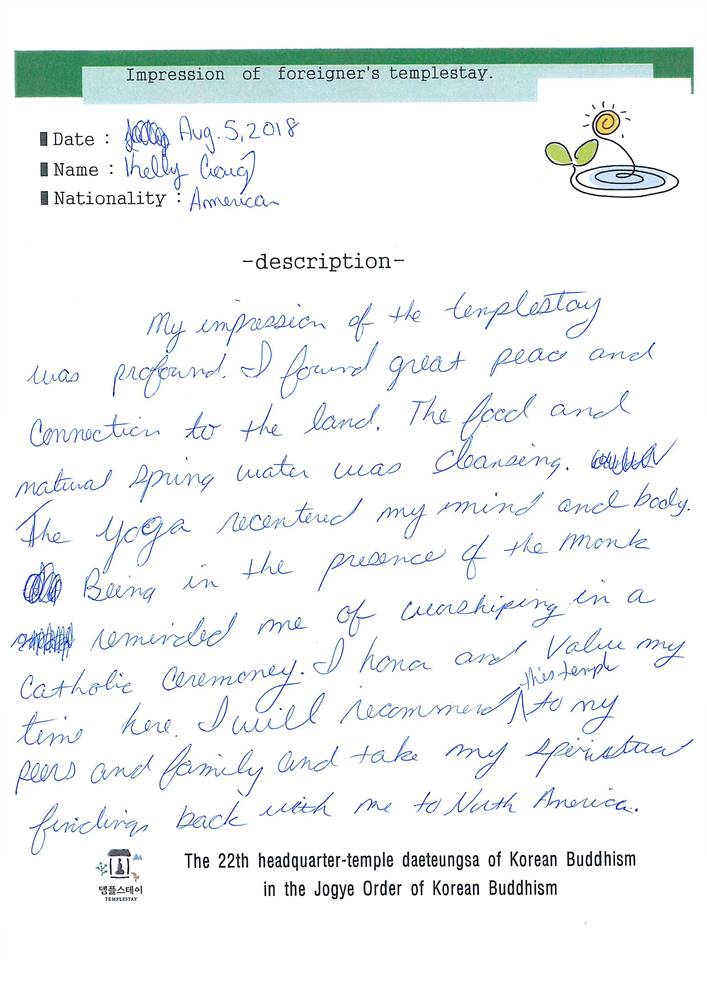 Impression of foreigner's templestay.
Date : Aug. 5, 2018
Name : Kelly Craig
Nationality : American
-description-
My impression of the templestay
was profound. I found great peace and
connection to the land. The food and
natural spring water was cleansing.
The yoga recentered my mind and body.
Being in the presence of the monk
reminded me of worshiping in a
Catholic ceremoney. I honor and value my
this temple
time here. I will recommend to my
peers and family and take my spiritual
findings back with me to North America.
템플스테이
TEMPLESTAY
The 22th headquarter-temple daeteungsa of Korean Buddhism
in the Jogye Order of Korean Buddhism